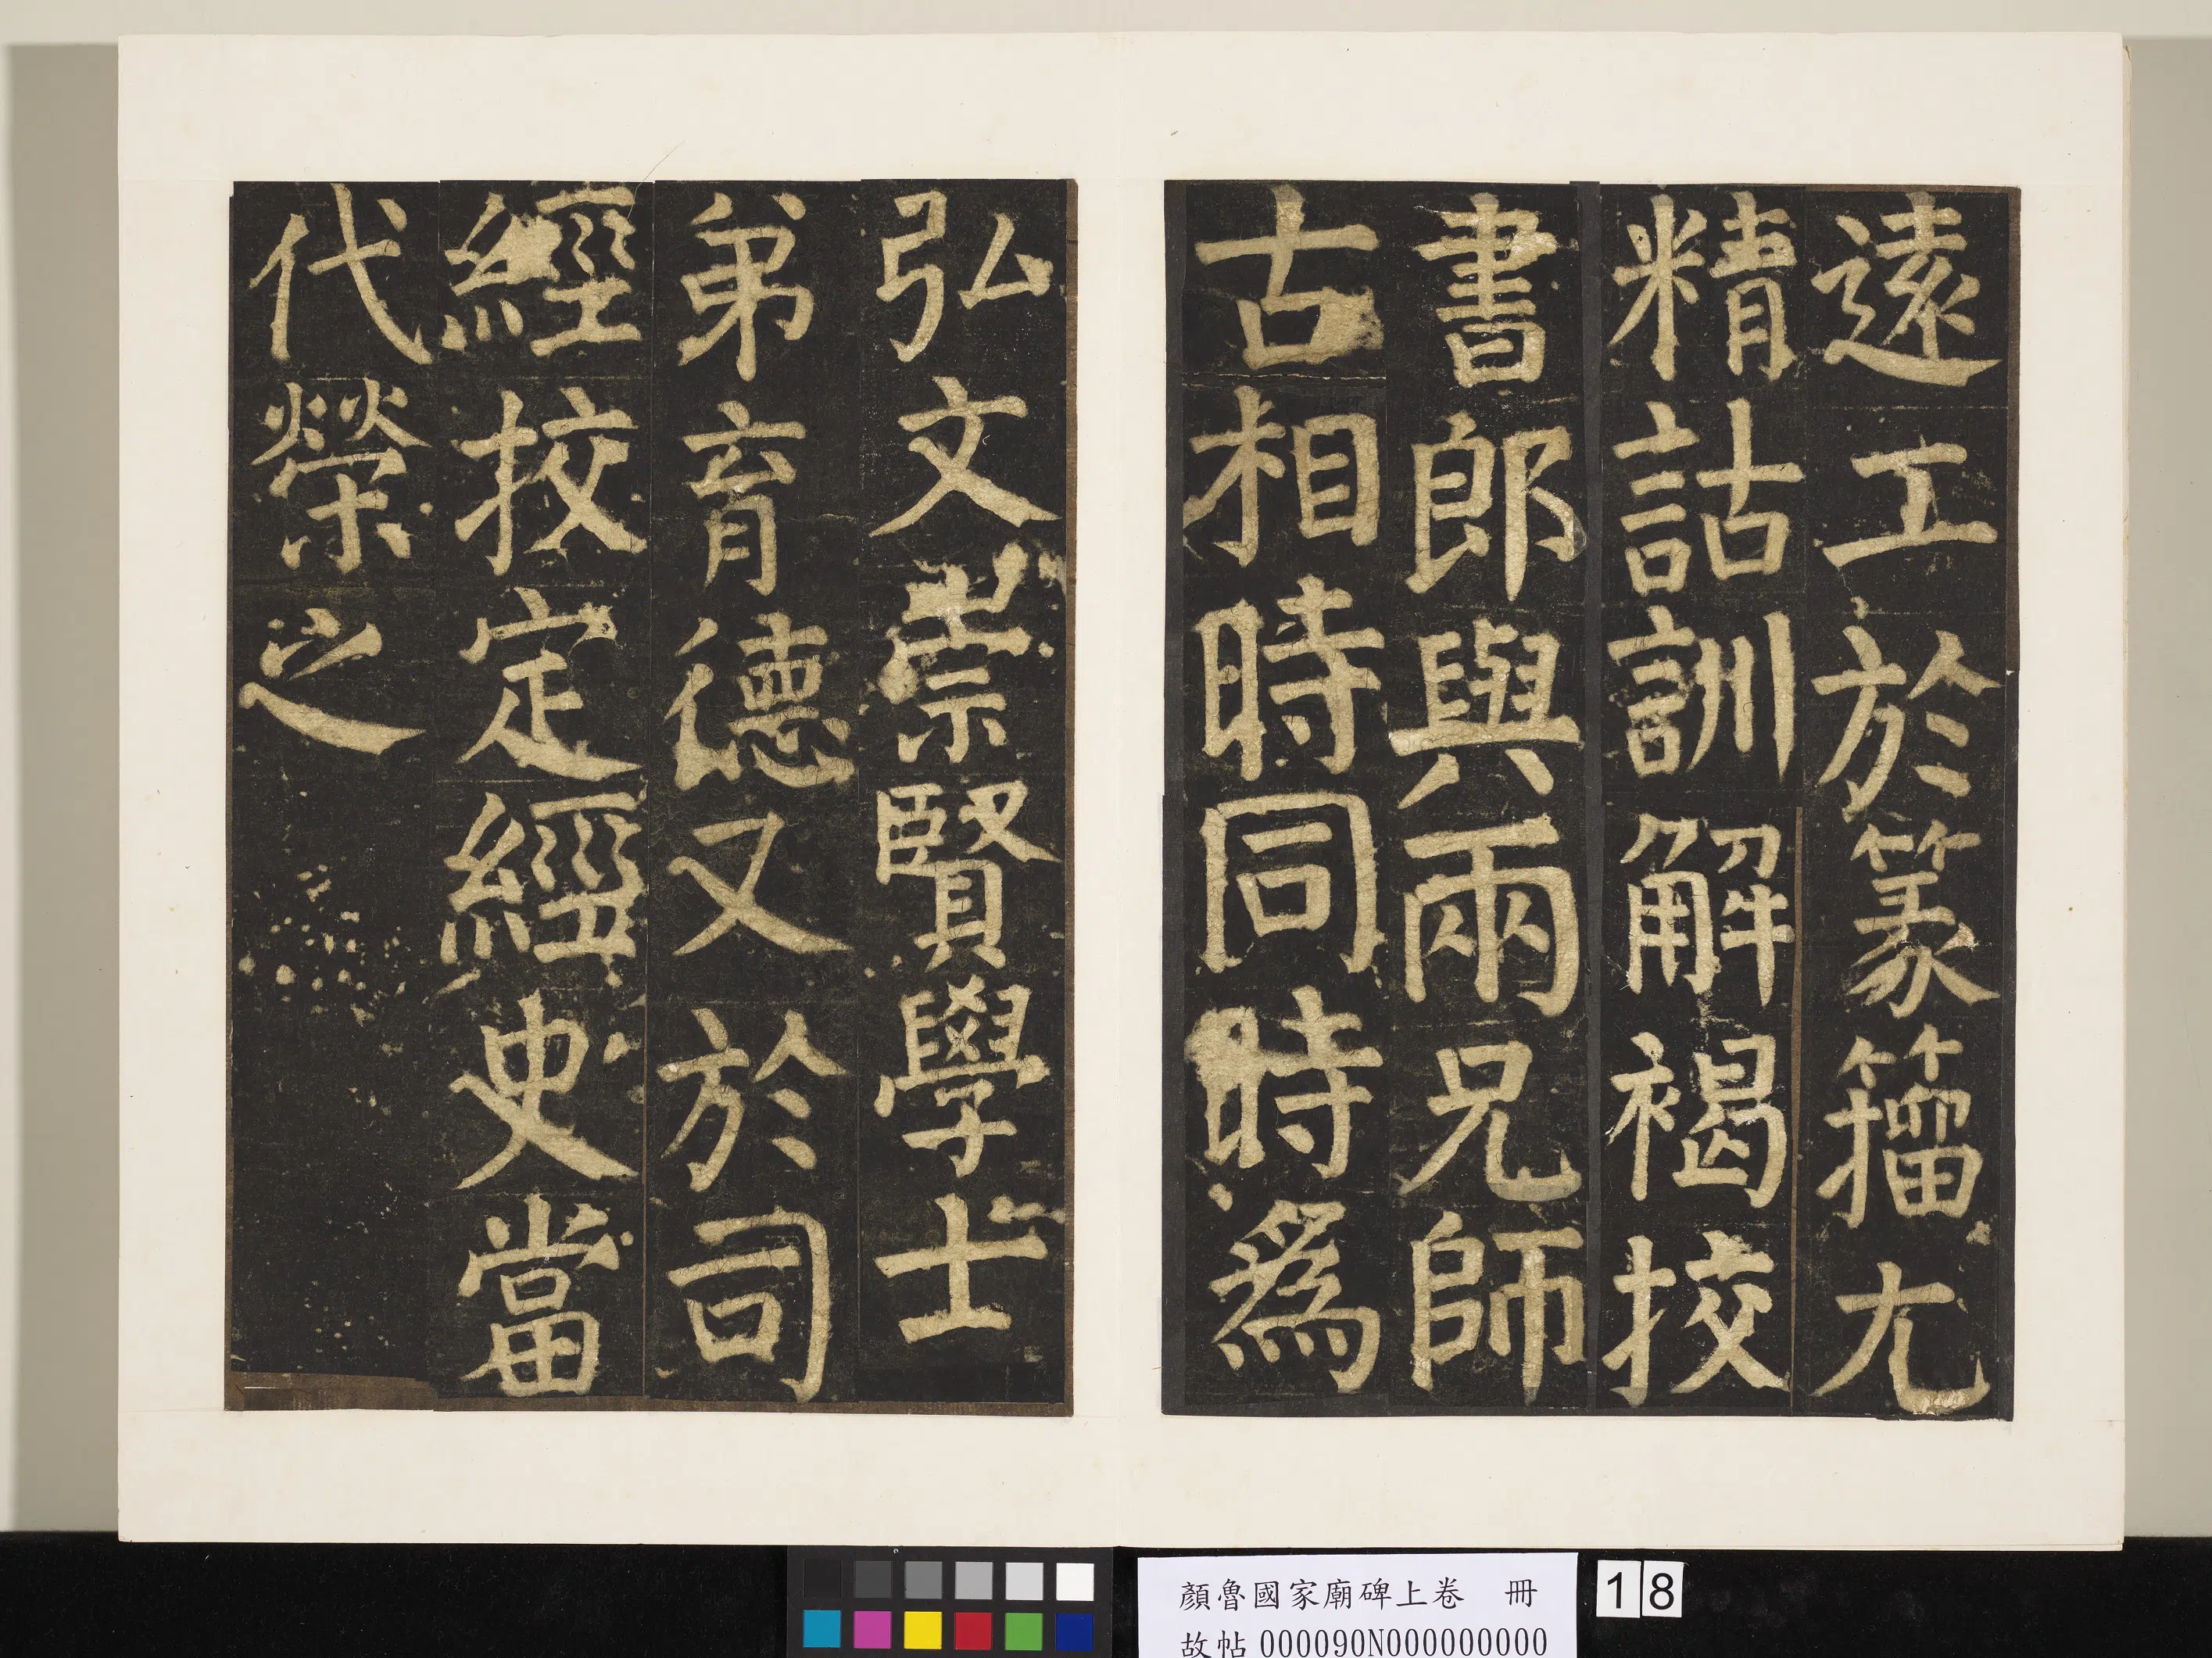 遠工於篆籀尤
精詁訓解褐挍
書郎與兩兄師
古相時同時爲
弘文崇賢學士
弟育德又於司
經挍定經史當
代榮之
顏魯國家廟碑上卷 冊
故帖000090N000000000
18